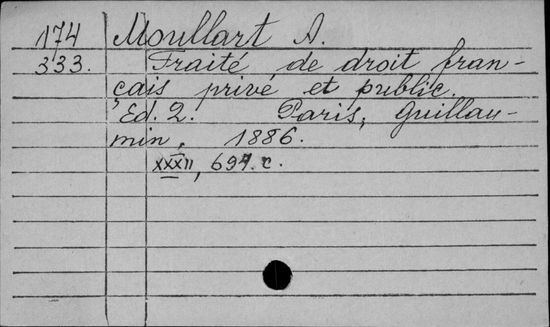 174 Moullart A.
333. Traité de droit fran-
çais privé et public.
Ed. 2. Paris, Guillau-
min, 1886.
XXXII, 697. c.